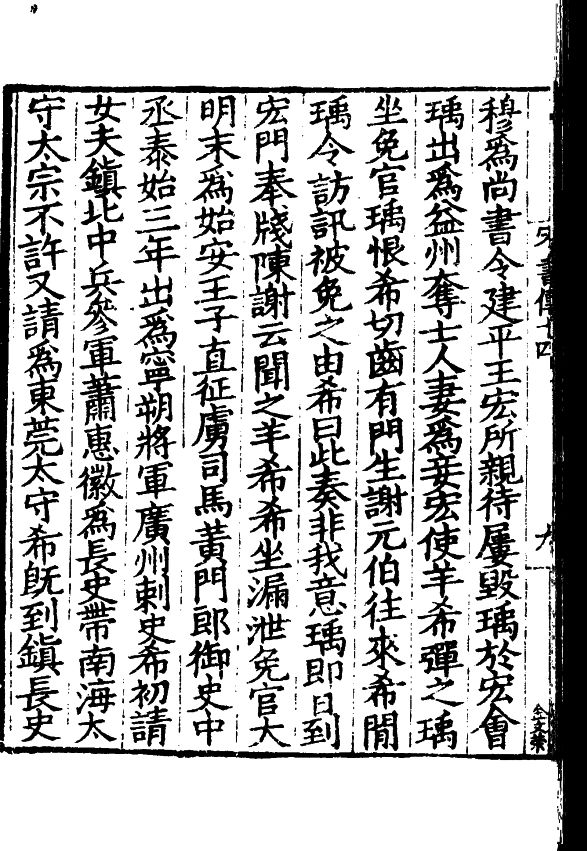 穆爲尚書令建平王宏所親待屢毀瑀於宏會
瑀出爲益州奪士人妻爲妾宏使羊希彈之瑀
坐免官瑀恨希切齒有門生謝元伯往來希間
瑀令訪訊被免之由希曰此奏非我意瑀即日到
宏門奉牋陳謝云聞之羊希希坐漏泄免官大
明末爲始安王子真征虜司馬黃門郎御史中
丞泰始三年出爲寧朔將軍廣州刺史希初請
女夫鎮北中兵參軍蕭惠徽爲長史帶南海太
守太宗不許又請爲東莞太守希旣到鎮長史